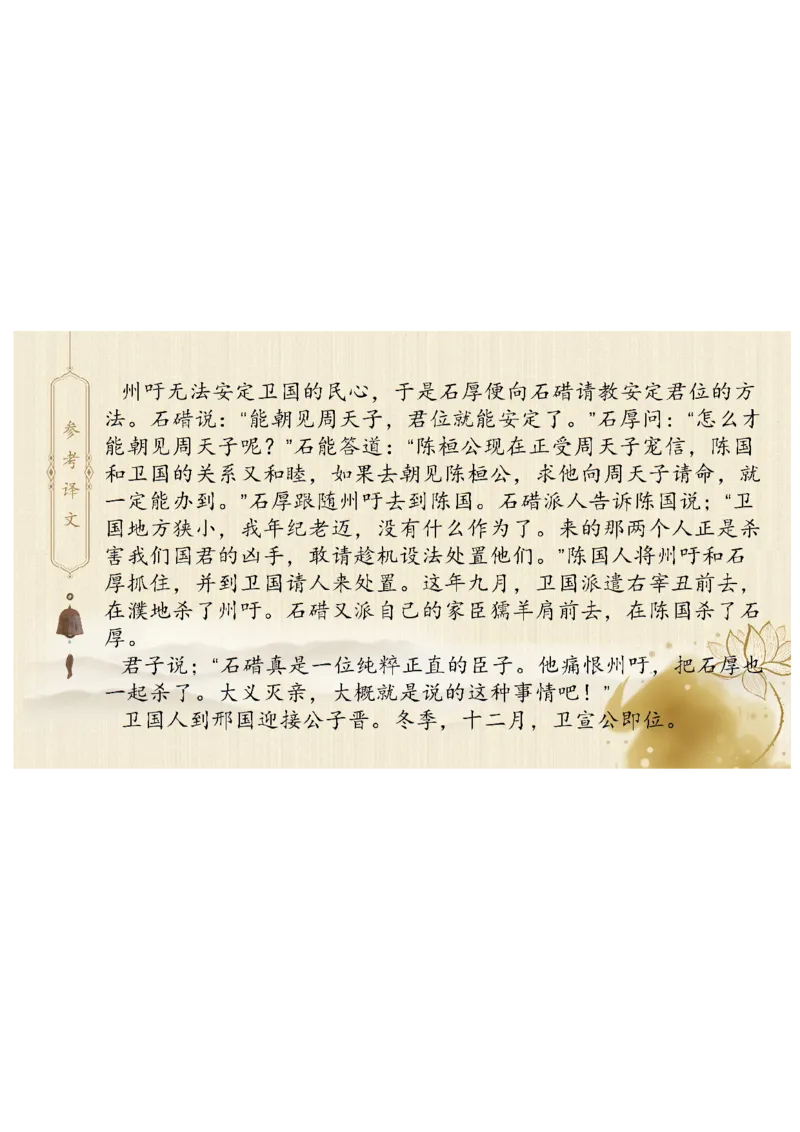 参考译文
州吁无法安定卫国的民心，于是石厚便向石碏请教安定君位的方
法。石碏说：“能朝见周天子，君位就能安定了。”石厚问：“怎么才
能朝见周天子呢？”石能答道：“陈桓公现在正受周天子宠信，陈国
和卫国的关系又和睦，如果去朝见陈桓公，求他向周天子请命，就
一定能办到。”石厚跟随州吁去到陈国。石碏派人告诉陈国说；“卫
国地方狭小，我年纪老迈，没有什么作为了。来的那两个人正是杀
害我们国君的凶手，敢请趁机设法处置他们。”陈国人将州吁和石
厚抓住，并到卫国请人来处置。这年九月，卫国派遣右宰丑前去，
在濮地杀了州吁。石碏又派自己的家臣獳羊肩前去，在陈国杀了石
厚。
君子说；“石碏真是一位纯粹正直的臣子。他痛恨州吁，把石厚也
一起杀了。大义灭亲，大概就是说的这种事情吧！”
卫国人到邢国迎接公子晋。冬季，十二月，卫宣公即位。